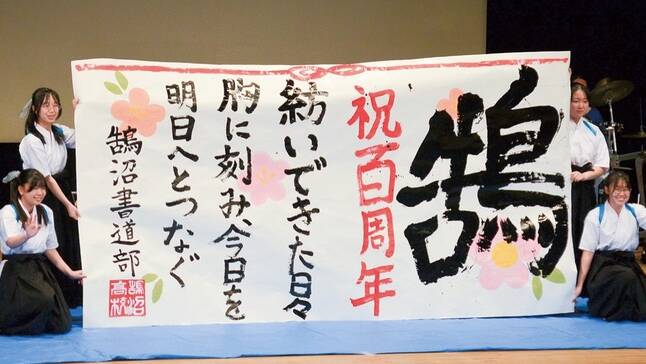 鵠
祝百周年
紡いできた日々
胸に刻み、今日を
明日へとつなぐ
鵠沼書道部
鵠沼
高校